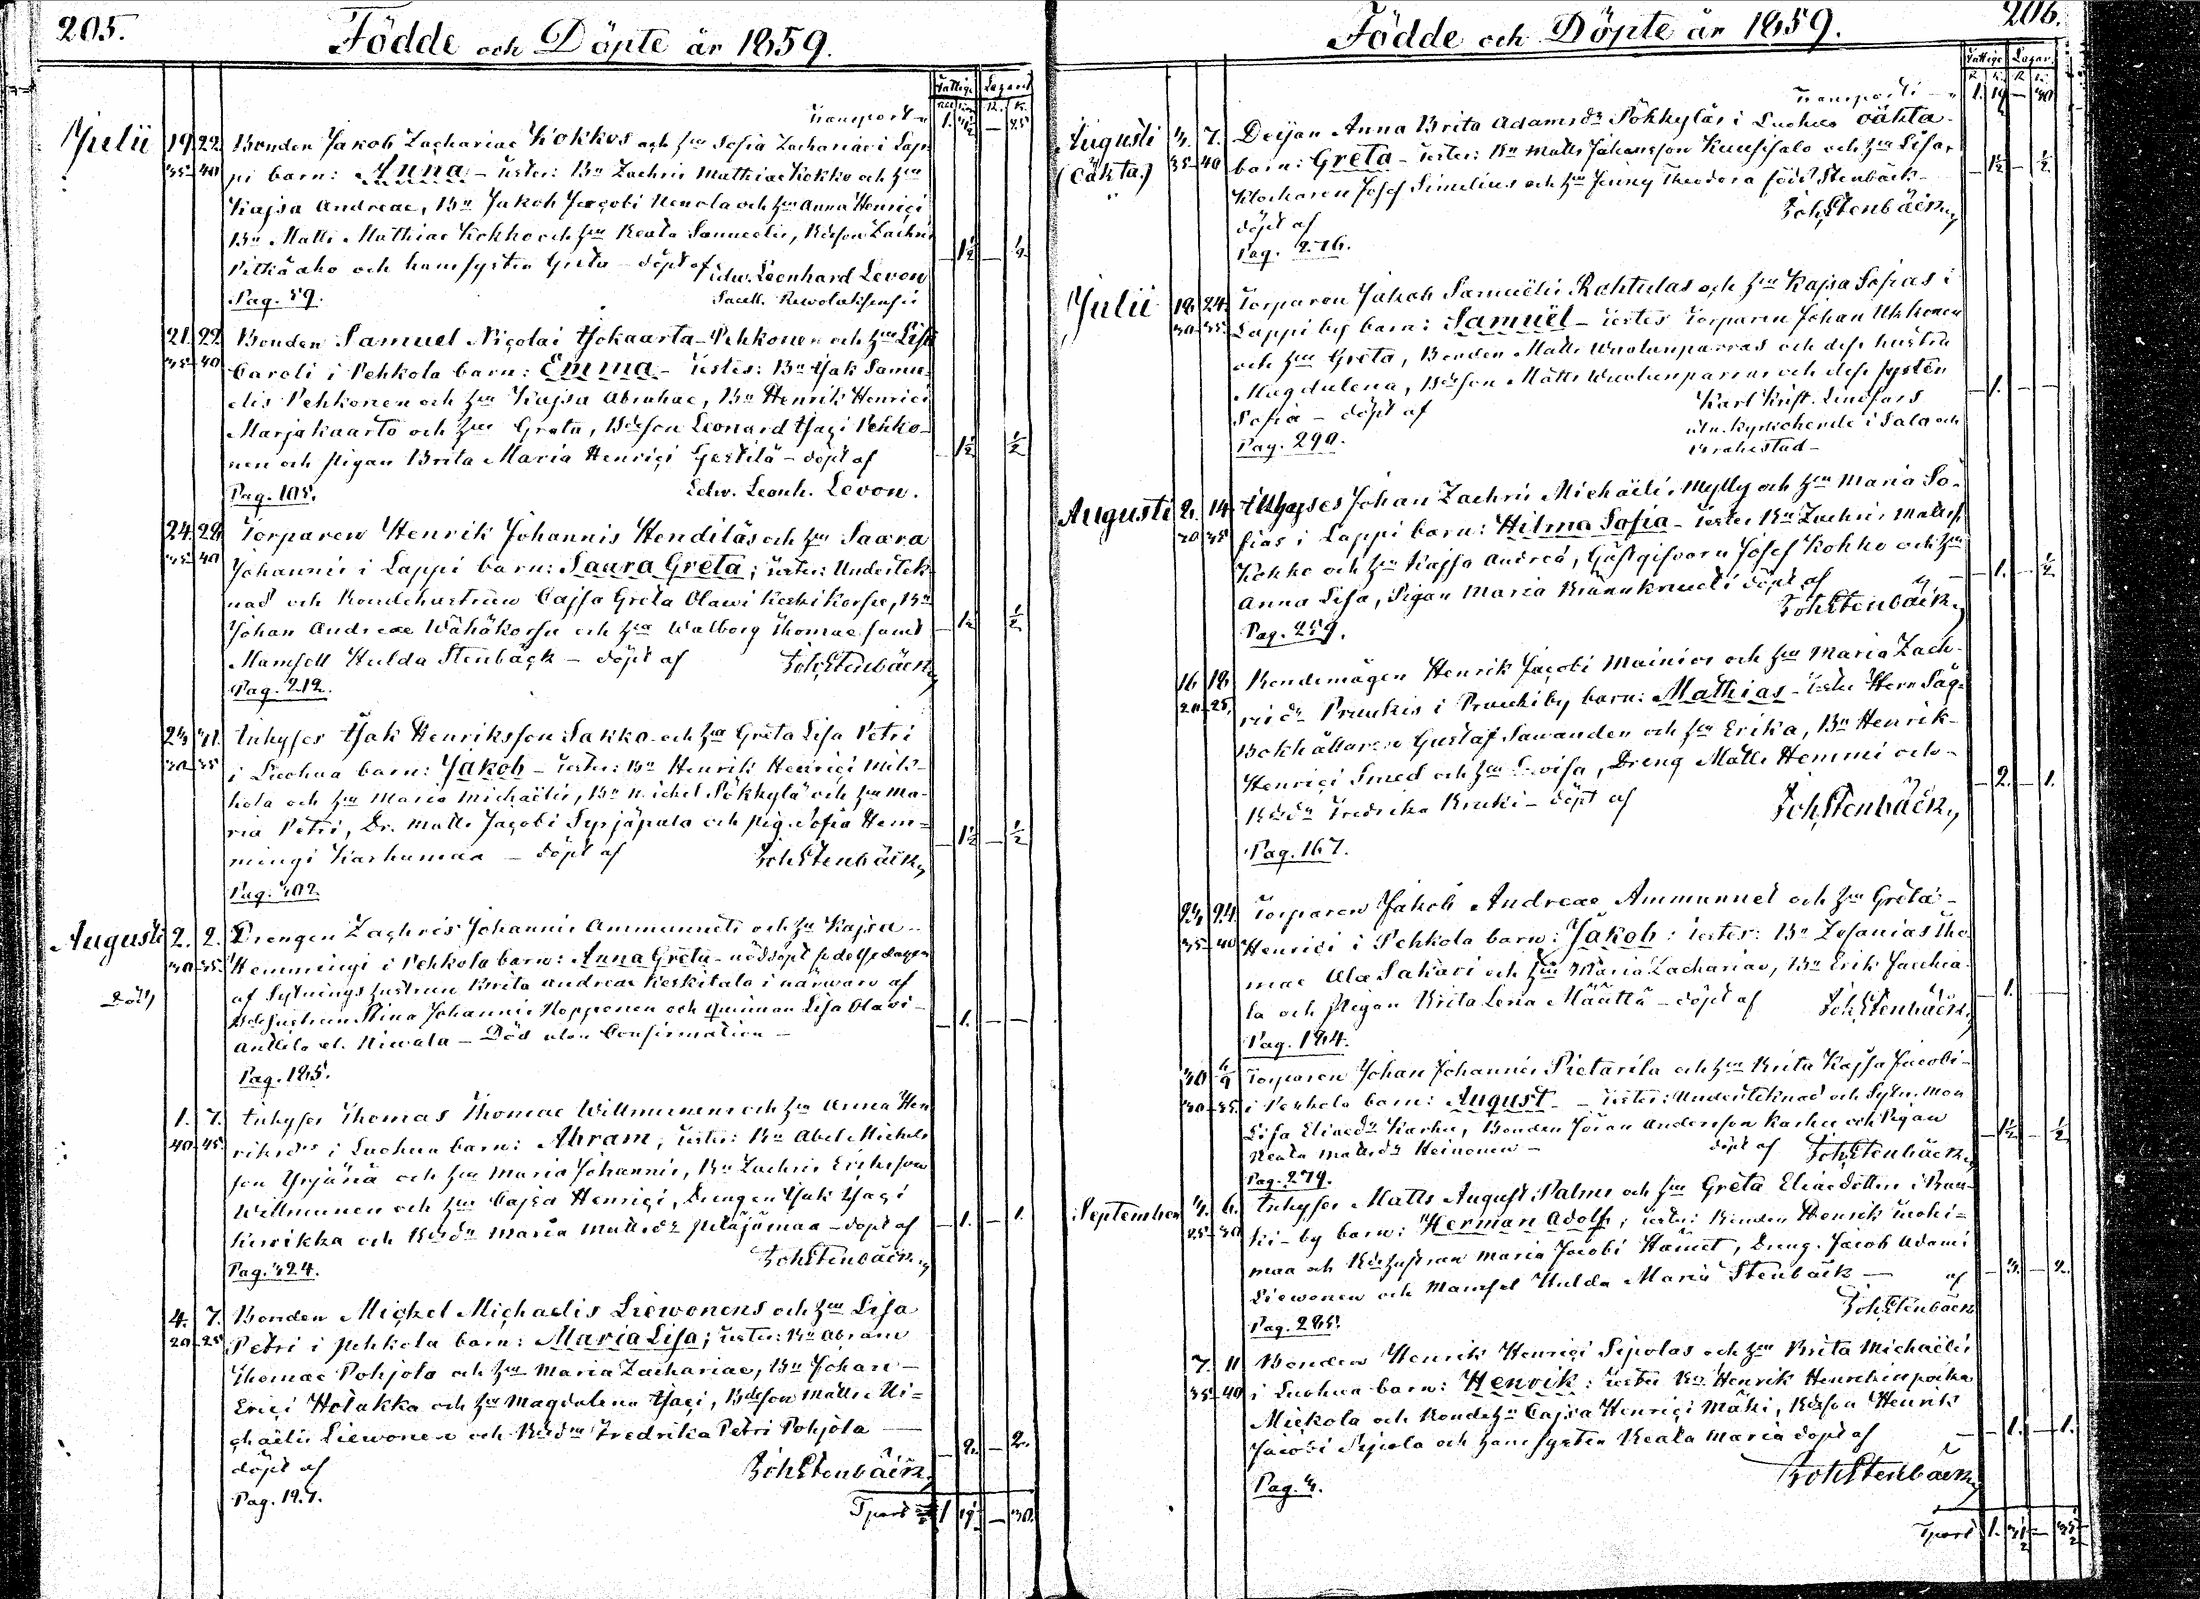 205.
Födde och Döpte år 1859.
Fattige Lazaret
Transport
Julii 19. 22. Bonden Jakob Zachariae Kokkos och hu Sofia Zachariae i Lap-
35-40 pi barn: Anna - testes: Bn Zachris Mathiae Kokko och hu
Kajsa Andreae, Bn Jakob Jacobi Uenola och hu Anna Henrici
Bn Matts Mathiae Kokko och hu Beata Samuelis, Bdeson Zachris
Pitkäaho och hans syster Greta - döpt af Edw. Leonhard Levon
Pag. 59. Sacell. Rewolaksensis
21. 22. Bonden Samuel Nicolai Hokaarta-Pehkonen och hu Lisa
35-40 Caroli i Pehkola barn: Emma - testes: Bn Isak Samu-
elis Pehkonen och hu Kajsa Abrahae, Bn Henrik Henrici
Marjakaarto och hu Greta, Bdeson Leonard Isaci Pehko-
nen och pigan Brita Maria Henrici - döpt af
Pag. 105. Edw. Leonh. Levon.
24. 28. Torparen Henrik Johannis Henditäs och hu Saara
35-40 Johannis i Lappi barn: Saara Greta; testes: Undertek-
nad och Bondehustrun Cajsa Greta Olawi Keskikorsu, Bn
Johan Andreae Wähäkorsu och hu Walborg Thomae samt
Mamsell Hulda Stenbäck - döpt af JohStenbäck
Pag. 212.
23. 31. Inhyses Isak Henriksson Sakko och hu Greta Lisa Petri
30-35 i Luohua barn: Jakob - testes: Bn Henrik Henrici Mik-
kola och hu Maria Michaelis, Bn Mickel Pökkylä och hu Ma-
ria Petri, Dr. Matts Jacobi Syrjäpala och pig. Sofia Hem-
mingi Karhumaa - döpt af JohStenbäck
Pag. 302.
Augusti 2. 2. Drengen Zachris Johannis Ammunnets och hu Kajsa
30-35. Hemmingi i Pehkola barn: Anna Greta - nöddöpt
Död af Sytnings hustrun Brita Andreae Keskitalo i närwaro af
Bdehustrun Stina Johannis Hopponen och qwinnan Lisa Olavi
Anttila el. Niwala - Död utan Confirmation -
Pag. 185.
1. 7. Inhyses Thomas Thomae Willmunens och hu Anna Hen
40-45. riksdr i Luohua barn: Abram; testes: Bn Abel Michels
son Yrjänä och hu Maria Johannis, Bn Zachris Eriksson
Willmunen och hu Cajsa Henrici, Drengen Isak Isaci
Kuvikka och Bdedr Maria Mattsdr Petäjämaa - döpt af
Pag. 324. JohStenbäck
4. 7. Bonden Mickel Michaelis Liewonens och hu Lisa
20-25 Petri i Pehkola barn: Maria Lisa; testes: Bn Abram
Thomae Pohjola och hu Maria Zachariae, Bn Johan
Erici Holakka och hu Magdalena Isaci, Bdeson Matts Mi-
chaelis Liewonen och Bdedr Fredrika Petri Pohjola
döpt af JohStenbäck
Pag. 197.
Tport 1 19 - 30.
206.
Födde och Döpte år 1859.
Fattige Lazar.
Transport 1. 19 - 30
Augusti 3. 7. Deijan Anna Brita Adamsdr Pökkyläs i Luohua oäkta
(oäkta.) 35-40 barn: Greta - testes: Bn Matts Johansson Kuusisalo och hu Lisa,
Klockaren Josef Simelius och hu Jenny Theodora född Stenbäck
döpt af JohStenbäck
Pag. 276.
Julii 18. 24. Torparen Jakob Samuelis Rohtulas och hu Kajsa Sofias i
30-35. Lappi by barn: Samuël - testes Torparen Johan Ukkonen
och hu Greta, Bonden Matts Wuolunparras och dess hustru
Magdalena, Bdeson Matts Wuolunparras och dess syster
Sofia - döpt af Karl Krist. Lindfors
Pag. 290. utn. kyrkoherde i Salo och
Brahestad -
Augusti 2. 14. Inhyses Johan Zachris Michaelis Mylly och hu Maria So-
30 35 fias i Lappi barn: Hilma Sofia - testes Bn Zachris Matts
Kokko och hu Kajsa Andreä, Gästgifvarn Josef Kokko och hu
Anna Lisa, Pigan Maria döpt af
Pag. 259. JohStenbäck
16. 18. Bondemågen Henrik Jacobi Mainios och hu Maria Zach-
20-25. risdr Pruukis i Pruuki by barn: Mathias - testes Herr Såg-
Bokhållaren Gustaf Sawander och hu Erika, Bn Henrik
Henrici Smed och hu Lovisa, Dreng Matts Hemmi och
Bdedr Fredrika Bruki - döpt af JohStenbäck
Pag. 167.
23. 24. Torparen Jakob Andreae Ammunnet och hu Greta
35-40 Henrici i Pehkola barn: Jakob: testes: Bn Zefanias Tho
mae Ala Sakari och hu Maria Zachariae, Bn Erik
la och Pigan Brita Lena Määttä - döpt af JohStenbäck
Pag. 184.
30 4/9 Torparen Johan Johannis Pietarila och hu Brita Kajsa Jacobi
30-35. i Pehkola barn: August - testes: Undertecknad och Sytn. Mon
Lisa Eliaedr Karhu, Bonden Jöran Andersson Karhu och Pigan
Beata Mattsdr Heinonen - döpt af JohStenbäck
Pag. 279.
September 3. 6. Inhyses Matts August Palms och hu Greta Eliaedotter i Ruu-
25-30 ki-by barn: Herman Adolf; testes: Bonden Henrik Ruoki-
maa och Bdehustrun Maria Jacobi Hämet, Dreng. Jacob Adami
Liewonen och Mamsel Hulda Maria Stenbäck - af
Pag. 285. JohStenbäck
7. 11 Bonden Henrik Henrici Sipolas och hu Brita Michaelis
35-40 i Luohua barn: Henrik: testes Bn Henrik Henrikinpoika
Mickola och Bondehu Cajsa Henrici Mäki, Bdeson Henrik
Jacobi Sipola och hans syster Beata Maria döpt af
Pag. 3. JohStenbäck
Tport 1.